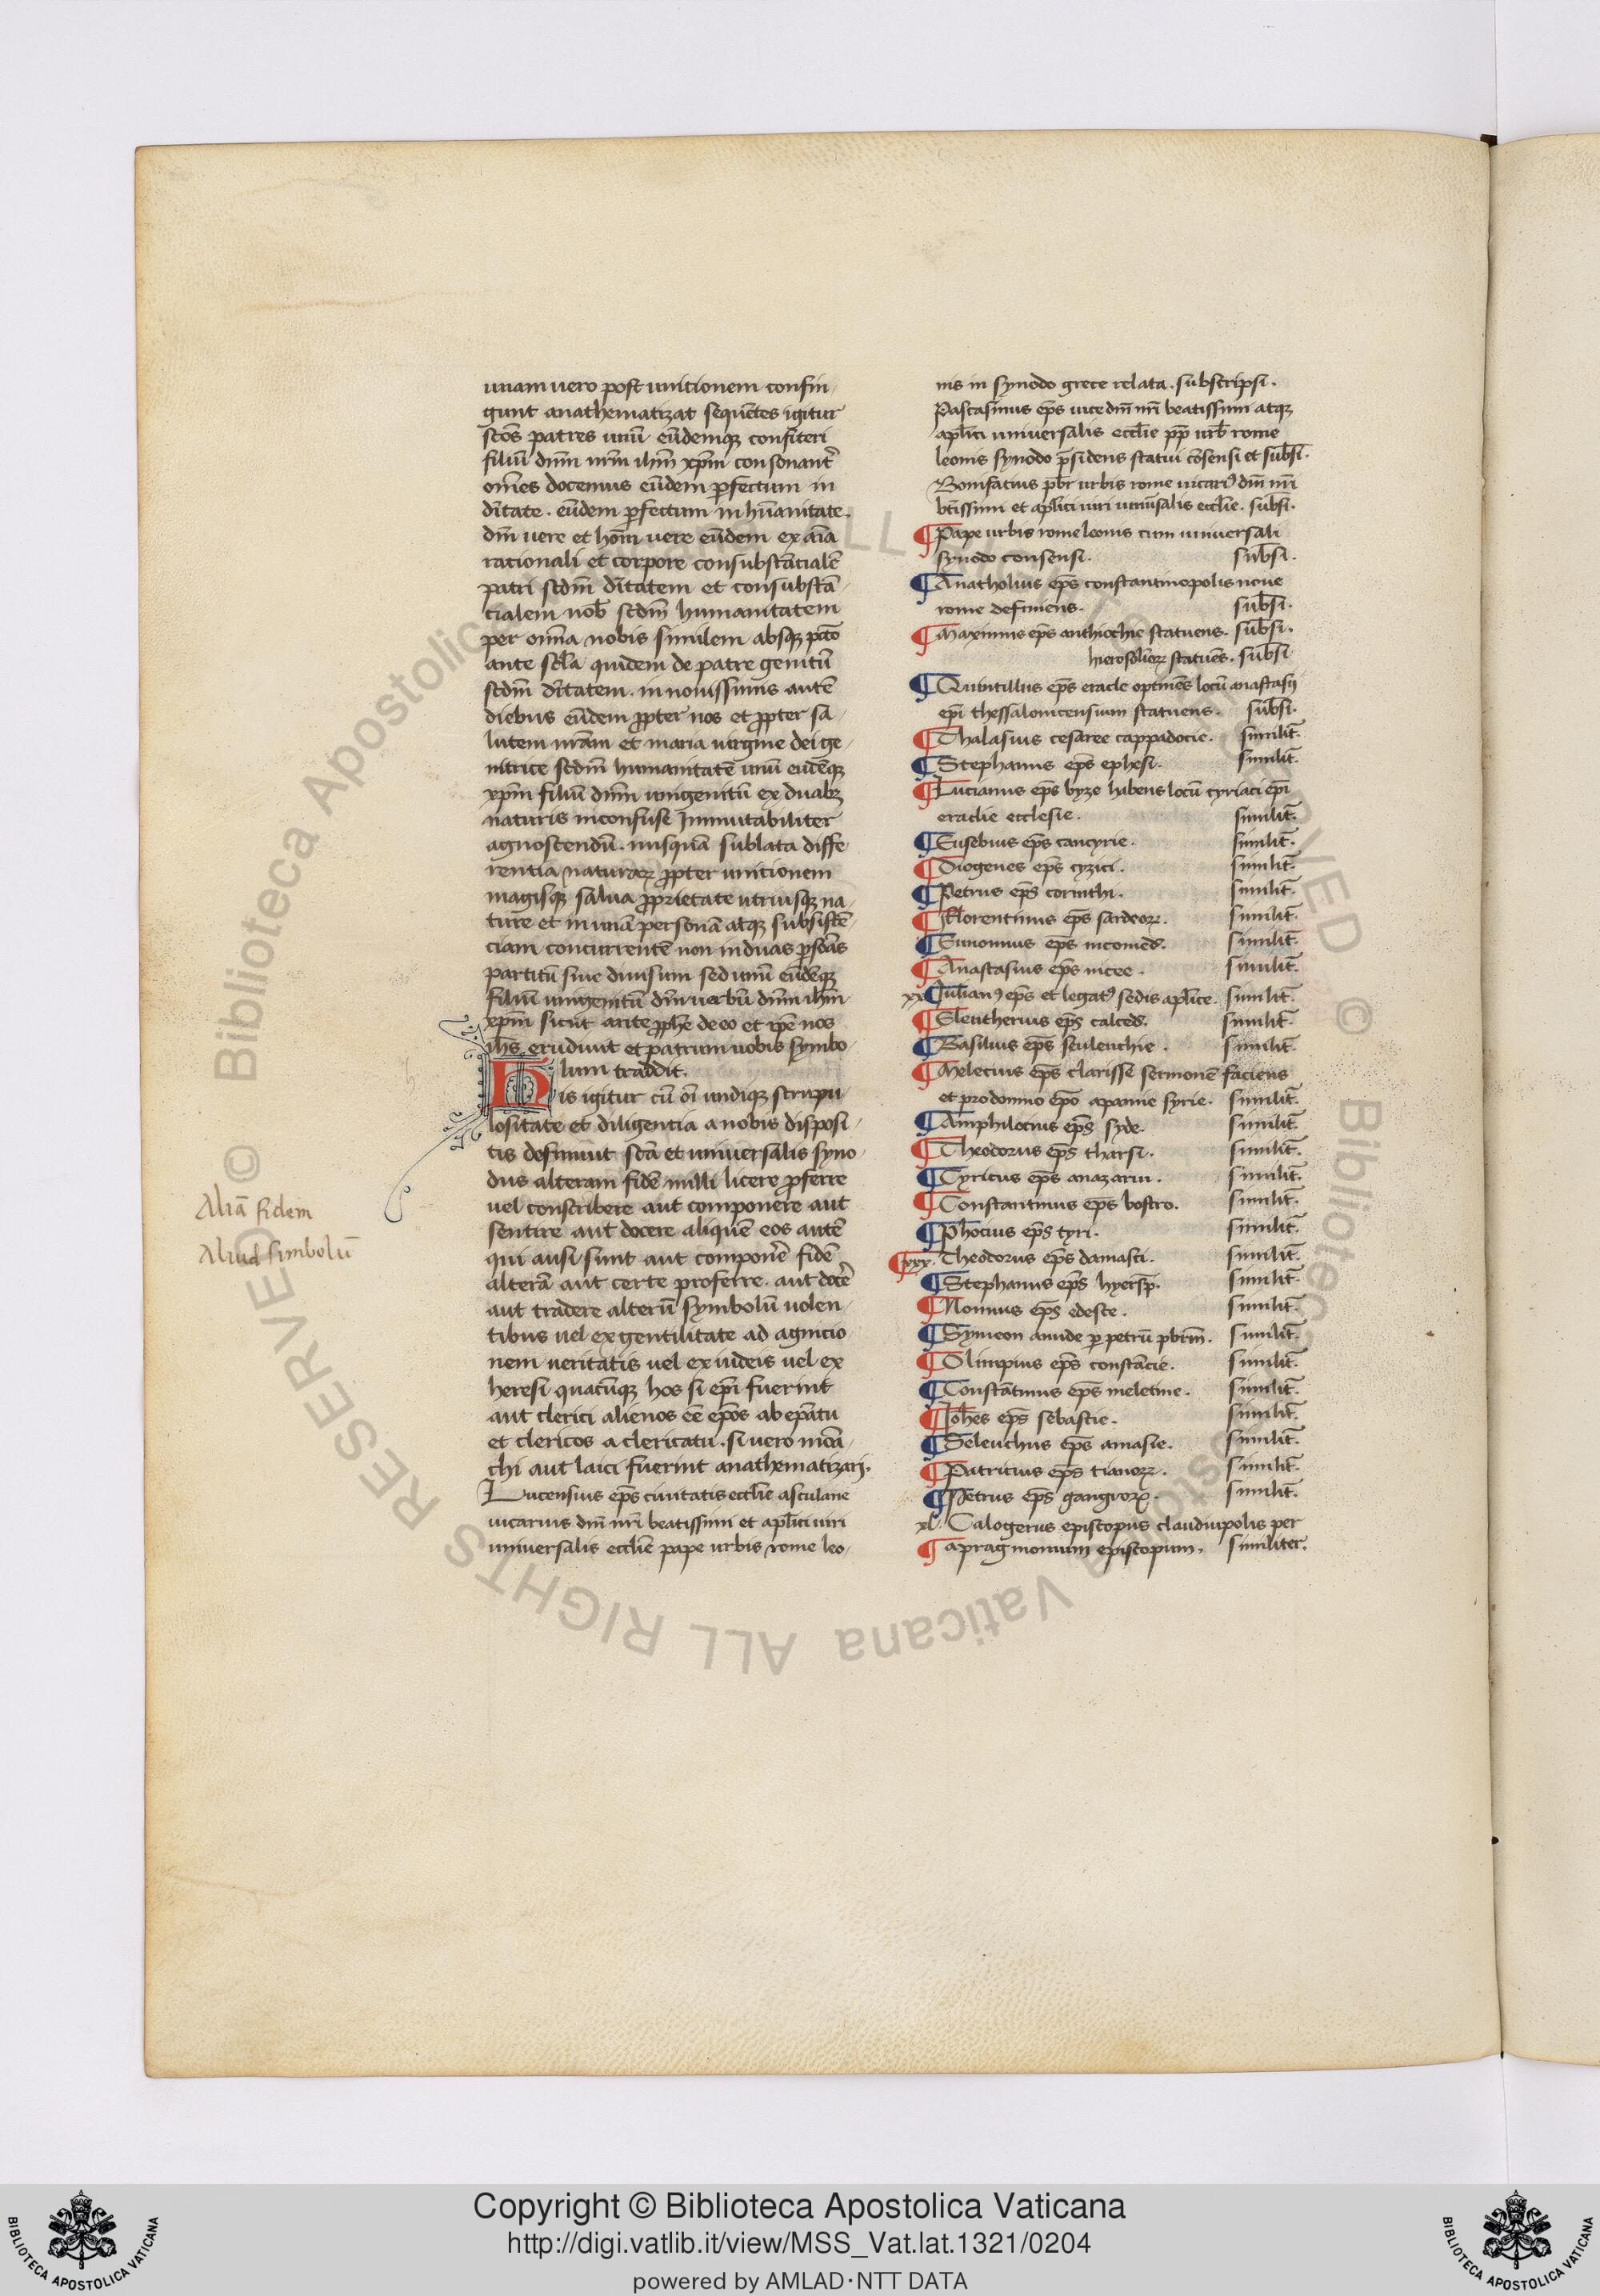 unam uero post unitionem confin
gunt anathematizat sequētes igitur
scōs patres unū eūdemqꝫ confiteri
filiū dnm̄ nrm̄ ihm̄ xpm̄ consonant̄
om̄es docemus eūdem ꝑfectum in
dītate. eūdem ꝑfectum in hūanitate.
dm̄ uere et hom̄ uere eūdem ex aīa
rationali et corpore consubstātialē
patri scdm̄ dītatem et consubstā
tialem nob̄ scdm̄ humanitatem
per om̄a nobis similem absqꝫ pctō
ante scl̄a quidem de patre genitū
scdm̄ dītatem. in nouissimis autē
diebus eūdem ꝓpter nos et ꝓpter sa
lutem nrām et maria uirgine dei ge
nitrice scdm̄ humanitatē unū eūdēqꝫ
xpm̄ filiū dnm̄ unigenitū ex duabꝫ
naturis inconfuse Inmutabiliter
agnoscendū. nusquā sublata diffe
rentia naturaꝝ ꝓpter unitionem
magisqꝫ salua ꝓprietate utriusqꝫ na
ture et in unā personā atqꝫ subsistē
ciam concurrentē non in duas ꝑsōas
partitū siue diuisum sed unū eūdēqꝫ
filiū unigenitū dm̄ uerbū dnm̄ ihm̄
xpm̄ sicut ante ꝓphē de eo et ip̄e nos
ihs̄ erudiuit et patrum nobis symbo
lum tradidit.
His igitur cū oī undiqꝫ scrupu
lositate et diligentia a nobis disposi
tis definiuit scā et uniuersalis syno
dus alteram fidē nulli licere ꝓferre
uel conscribere aut componere aut
sentire aut docere aliquē eos autē
qui ausi sunt aut componēe fidē
alterā aut certe proferre. aut docēe
aut tradere alterū symbolū uolen
tibus uel ex gentilitate ad agnicio
nem ueritatis uel ex iudeis uel ex
heresi quacūqꝫ hos si epī fuerint
aut clerici alienos eē ep̄os ab ep̄atu
et clericos a clericatu. si uero mōa
chi aut laici fuerint anathematizari.
Lucensius ep̄s ciuitatis eccl̄ie asculane
uicarius dn̄i nr̄i beatissimi et apl̄ici uiri
uniuersalis eccl̄ie pape urbis rome leo
Aliā fidem
Aliud simbolū
nis in synodo grece relata. subscripsi.
Pascasinus ep̄s uice dn̄i nr̄i beatissimi atqꝫ
apl̄ici uniuersalis eccl̄ie pp̄ urb̄ rome
leonis synodo p̄sidens statui cōsensi et subsī.
Bonifacius pb̄r urbis rome uicariꝰ dn̄i nr̄i
bt̄issimi et apl̄ici uiri uniūsalis eccl̄ie. subsi.
¶ Pape urbis rome leonis cum uniuersali
synodo consensi. subsi.
¶ Anatholius ep̄s constantinopolis noue
rome definiens. subsi.
¶ Maximus ep̄s anthiochie statuens. subsi.
hierosolimoꝝ statuēs. subsi
¶ Quintillus ep̄s eracle optinēs locū anastasij
epī thessalonicensium statuens. subsi.
¶ Thalasius cesaree cappadocie. similit̄.
¶ Stephanus ep̄s ephesi. similit̄.
¶ Lucianus ep̄s byze habens locū cyriaci epī
eraclie ecclesie. similit̄.
¶ Eusebius ep̄s cancyrie. similit̄.
¶ Diogenes ep̄s cyzici. similit̄.
¶ Petrus ep̄s corinthi. similit̄.
¶ Florentinus ep̄s sardeoꝝ. similit̄.
¶ Eunomius ep̄s nicomed̄. similit̄.
¶ Anastasius ep̄s nicee. similit̄.
xx ¶ Iulianꝰ ep̄s et legatꝰ sedis apl̄ice. similit̄.
¶ Eleutherius ep̄s calced̄. similit̄.
¶ Basilius ep̄s seuleuchie. similit̄.
¶ Melecius ep̄s clarisse sermonē faciens
et pro domno ep̄o apamie syrie. similit̄.
¶ Amphilocius ep̄s syde. similit̄.
¶ Theodorus ep̄s tharsi. similit̄.
¶ Cyricus ep̄s anazarui. similit̄.
¶ Constantinus ep̄s bostro. similit̄.
¶ Phocius ep̄s tyri. similit̄.
¶ xxx. Theodorus ep̄s damasci. similit̄.
¶ Stephanus ep̄s hyersp̄. similit̄.
¶ Nonnus ep̄s edesce. similit̄.
¶ Symeon amide ꝑ petrū pb̄rm̄. similit̄.
¶ Olimpius ep̄s constācie. similit̄.
¶ Constātinus ep̄s meletine. similit̄.
¶ Ioh̄es ep̄s sebastie. similit̄.
¶ Seleuchus ep̄s amasie. similit̄.
¶ Patricius ep̄s tianoꝝ. similit̄.
¶ Petrus ep̄s gangroꝝ. similit̄.
xl. Calogerus episcopus claudiupolis per
¶ apragmonium episcopum. similiter.
© Biblioteca Apostolica Vaticana ALL RIGHTS RESERVED
Copyright © Biblioteca Apostolica Vaticana
http://digi.vatlib.it/view/MSS_Vat.lat.1321/0204
powered by AMLAD·NTT DATA
BIBLIOTECA APOSTOLICA VATICANA
BIBLIOTECA APOSTOLICA VATICANA